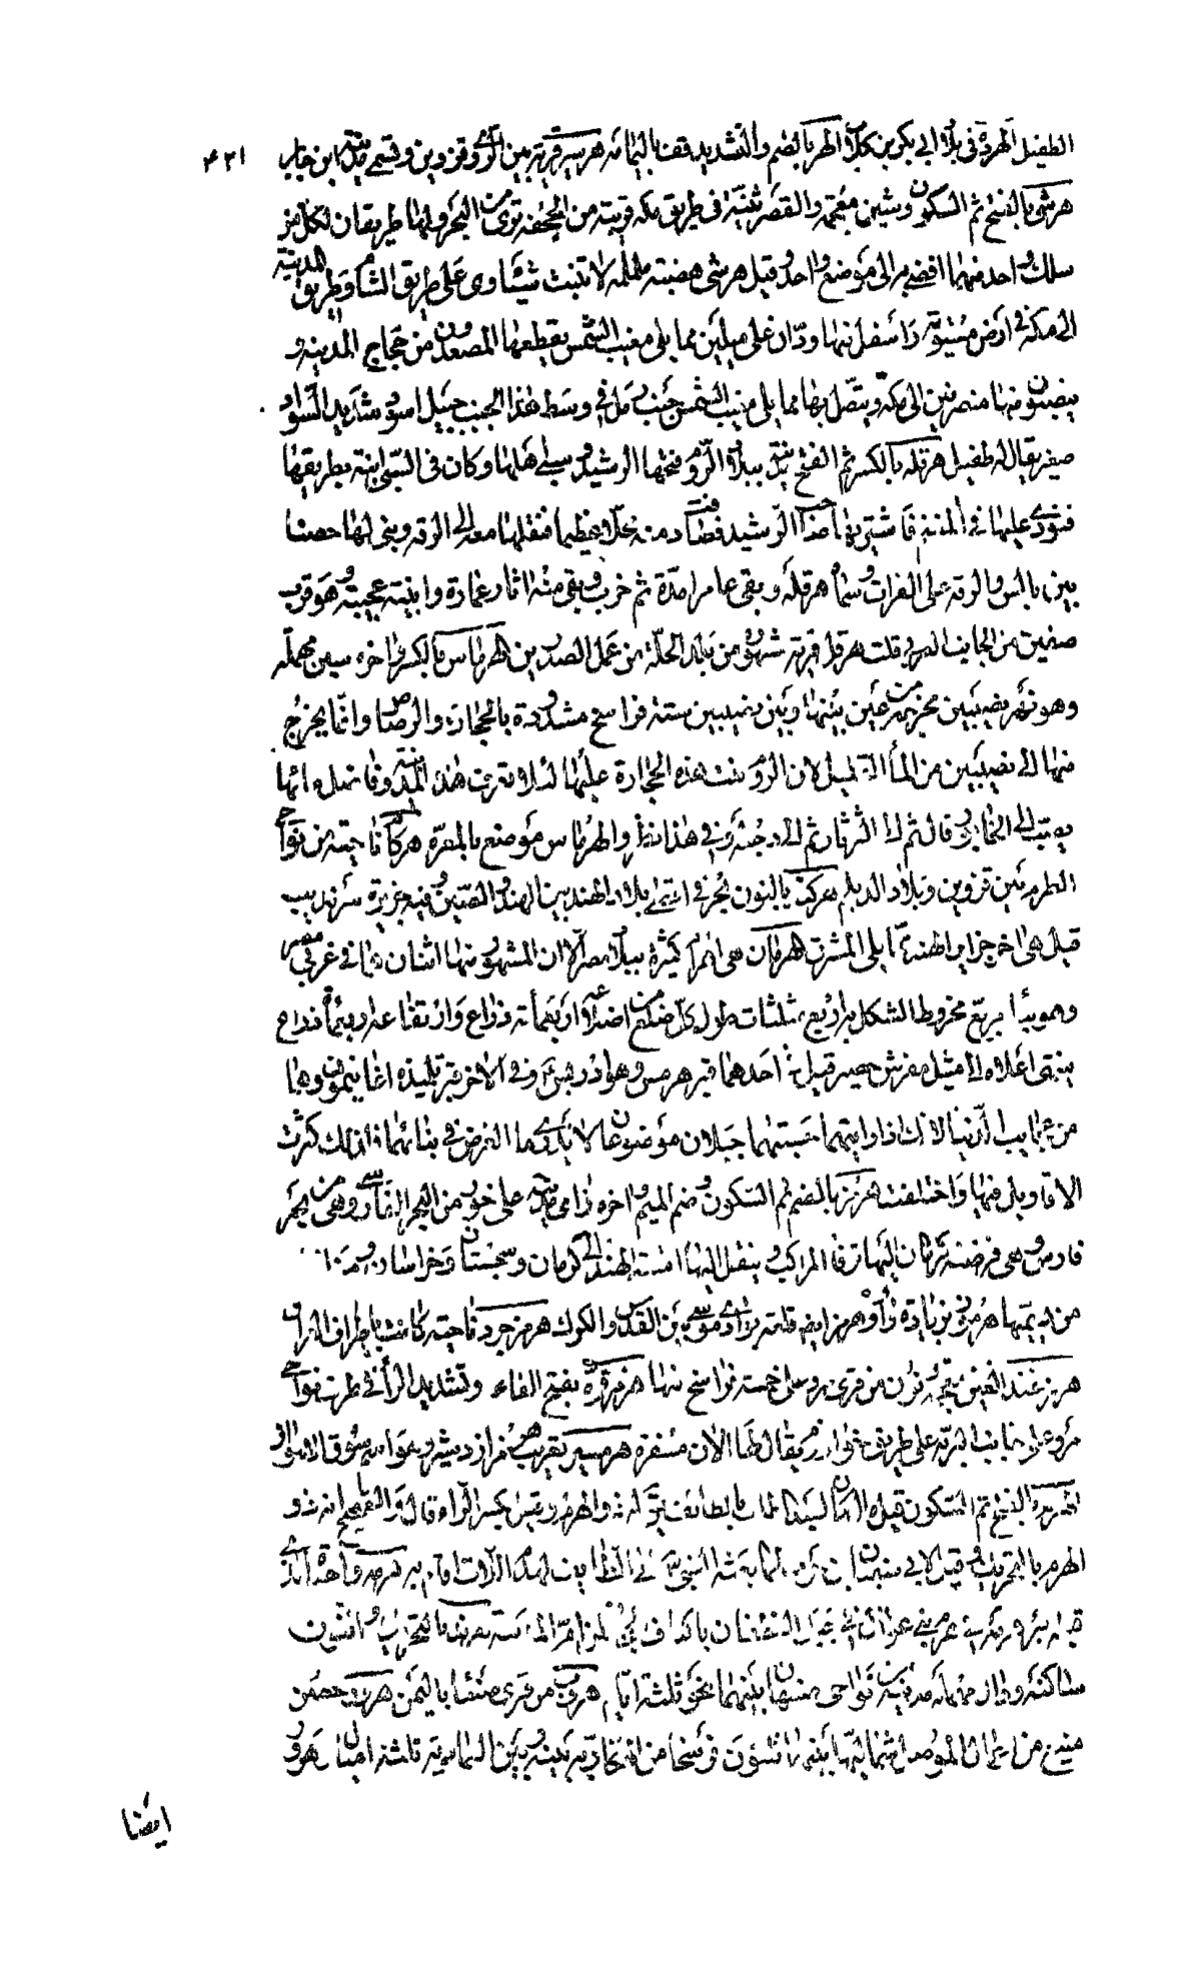 الطفيل الهردة فى بلاد ابى بكر بن كلاب الهر بالضم والتشديد قف باليمامه هرسه قرية بين الرى وقزوين وقسمى مدينة ابن جابر ٤٣١
هرشى بالفتح ثم السكون وشين معجمة والقصر ثنية فى طريق مكه قريبة من الجحفه ترى من البحر ولها طريقان لكل من
سلك واحد منهما افضى به الى موضع واحد وقيل هرشى هضبة ململمه لا تنبت شيئا وهى على طريق الشام وطريق المدينة
الى مكة فى ارض مستوية واسفل منها ودّان على ميلين مما يلى مغيب الشمس يقطعها المصعدون من حجاج المدينه و
ينصبون منها منصرفين الى مكة ويتصل بها مما يلى مغيب الشمس خبت رمل فى وسط هذا الخبت جبيل اسود شديد السواد
صغير يقال له طفيل هرقله بالكسر ثم الفتح مدينة ببلاد الروم فتحها الرشيد وسبى اهلها وكان فى السبى ابنة بطريقها
فنودى عليها فى المغنم فاشتريت لها حدا الرشيد فصادفت منه محلا عظيما فنقلها معه الى الرقه وبنى لها حصنا
بين بالس والرقه على الفرات وسماه هرقله وبقى عامرا مدة ثم خرب وبقى منه اثار عمارة وابنية عجيبة وهو قرب
صفين من الجانب الغربى قلت هرقل قرية مشهورة من بلد الحلة من عمل الصدرين الهرماس بالكسر واخره سين مهملة
وهو نهر نصيبين مخرجه من عين بينها وبين نصيبين ستة فراسخ مشدودة بالحجارة والرصاص وانما يخرج
منها الى نصيبين من الماء القليل لان الروم بنت هذه الحجارة عليها لئلا تغرق هذه المدينة وفاضل مائها
يصب الى الخابور قال ثم الى الثرثار ثم الى دجلة وفى هذا نظر والهرماس موضع بالمعرة هركام ناحية من نواحى
الطرم بين قزوين وبلاد الديلم هركند بالنون بحر فى اقصى بلاد الهند بين الهند والصين وفيه جزيرة سرنديب
قيل هى اخر جزاير الهند مما يلى المشرق هرمان هى اهرام كثيرة ببلاد مصر الا ان المشهور منها اثنان هما فى غربى مصر
وهو بناء مربع مخروط الشكل باربع مثلثات طول كل ضلع من اضلاعه اربعمائة ذراع وارتفاعه اربعمائة ذراع
ينتهى اعلاه الى مثل مفرش حصير قيل ان احدهما قبر هرمس وهو ادريس وفى الاخر قبر تلميذه اغاثيمون وهما
من عجايب الدنيا لانك اذا رايتهما حسبتهما جبلان موضوعان لا يدرى ما الغرض فى بنائهما فلذلك كثرت
الاقاويل فيها واختلفت هرمز بالضم ثم السكون وضم الميم واخره زاى مدينة على خور من البحر الفارسى وهى من بحر
فارس وهى فرضة كرمان اليها ترفا المراكب وينقل اليها امتعة الهند الى كرمان وسجستان وخراسان ومنهم
من يسميها هرموز بزيادة واو وهرمز ايضا قلعة بوادى موسى بين القدس والكرك هرمزجرد ناحية كانت باطراف العراق
هرمزغند الغين معجمه نون من قرى مرو على خمسة فراسخ منها هرمزفره بفتح الفاء وتشديد الراء فى طرف نواحى
مرو على جانب البرية على طريق خوارزم يقال لها الان مسفره هرمشير تعريب هرمز اردشير وهو اسم سوق الاهواز
الهرم بالفتح ثم السكون قيل كان لسيد مال بالطائف يقال له ذو الهرم ورئيس بكسر الراء قال والصحيح انه ذو
الهرم بالتحريك قيل لابى سفيان بن حرب لما بعثه النبى الى الطائف لهدم اللات اقام به هرمه واحدة التى
قبله بئر ... فى ... عوال فى جبال الغطفان باكناف الحجاز لمن ام المدينة هرند بالتحريك والنون
ساكنة ودال مهملة مدينة من نواحى اصبهان بينهما نحو ثلثة ايام هروب من قرى صنعا باليمن هرور حصن
منيع من اعمال الموصل شماليها بينهما ثلثون فرسخا من ... بينه وبين العمادية ثلثة اميال هرور
ايضا